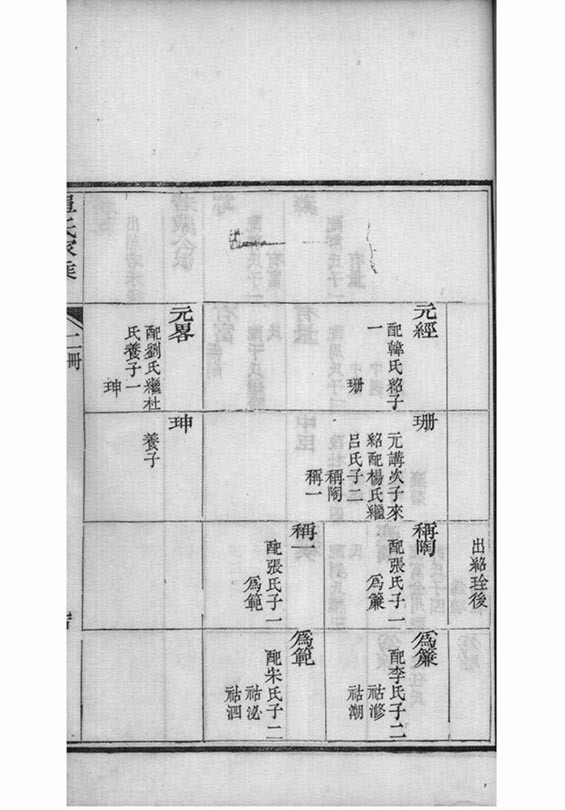 出紹琻後
元經
配韓氏紹子
一
珊
珊
元講次子來
紹配楊氏繼
呂氏子二
稱陶
稱一
稱陶
配張氏子一
為簾
為簾
配李氏子二
祜潹
祜潮
稱一
配張氏子一
為範
為範
配宋氏子二
祜泌
祜泗
元畧
配劉氏繼杜
氏養子一
珅
珅
養子
二冊